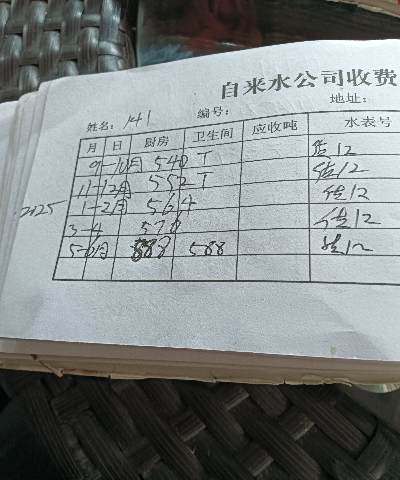 自来水公司收费
姓名: 141 编号: 地址:
月 日 厨房 卫生间 应收吨 水表号
9-10月 540T 12
11-12月 552T 12
2025 1-2月 564 12
3-4 578 12
5-6月 588 588 12